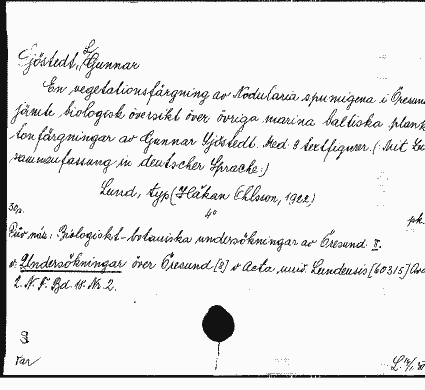 Gjöstedt, L. Gunnar
En vegetationsfärgning av Nodularia spumigena i Öresund
jämte biologisk översikt över övriga marina baltiska plank
tonfärgningar av Gunnar Gjöstedt. Med 3 textfigurer. (: Mit Zu
sammenfassung in deutscher Sprache :)
Lund, typ (Håkan Ohlsson, 1922)
4o
ph.
: Biologiskt-botaniska undersökningar av Öresund
v. Undersökningar över Öresund [8] v Acta univ. Lundensis [60315]
2. N. F. Bd 18. Nr 2.
Var